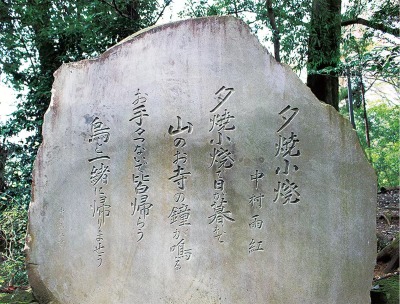 夕焼小焼
中村雨紅
夕焼小焼で日が暮れて
山のお寺の鐘が鳴る
お手々つないで皆帰ろう
烏と一緒に帰りましょう